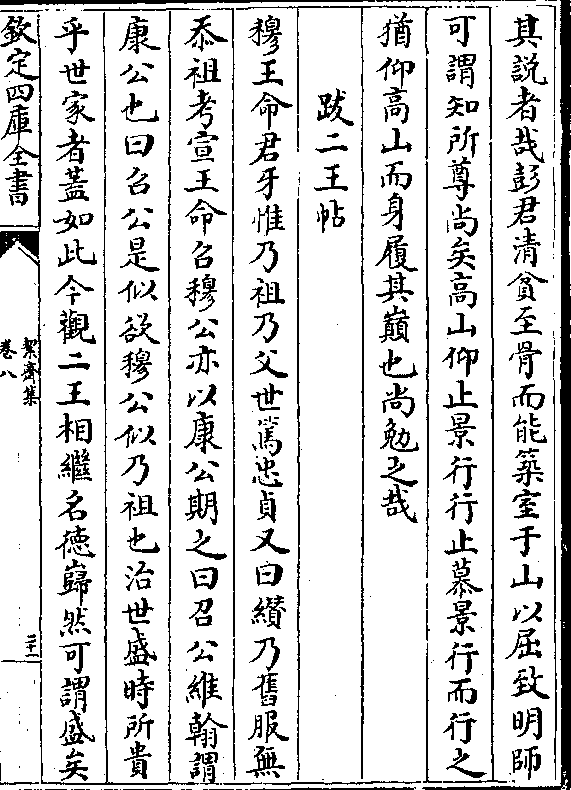 其説者哉彭君清貧至骨而能築室于山以屈致明師
可謂知所尊尚矣高山仰止景行行止慕景行而行之
猶仰高山而身履其巔也尚勉之哉
跋二王帖
穆王命君牙惟乃祖乃父世篤忠貞又曰纘乃舊服無
忝祖考宣王命召穆公亦以康公期之曰召公維翰謂
康公也曰召公是似欲穆公似乃祖也治世盛時所貴
乎世家者蓋如此今觀二王相繼名德巋然可謂盛矣
欽定四庫全書
絜齋集
卷八
二十一